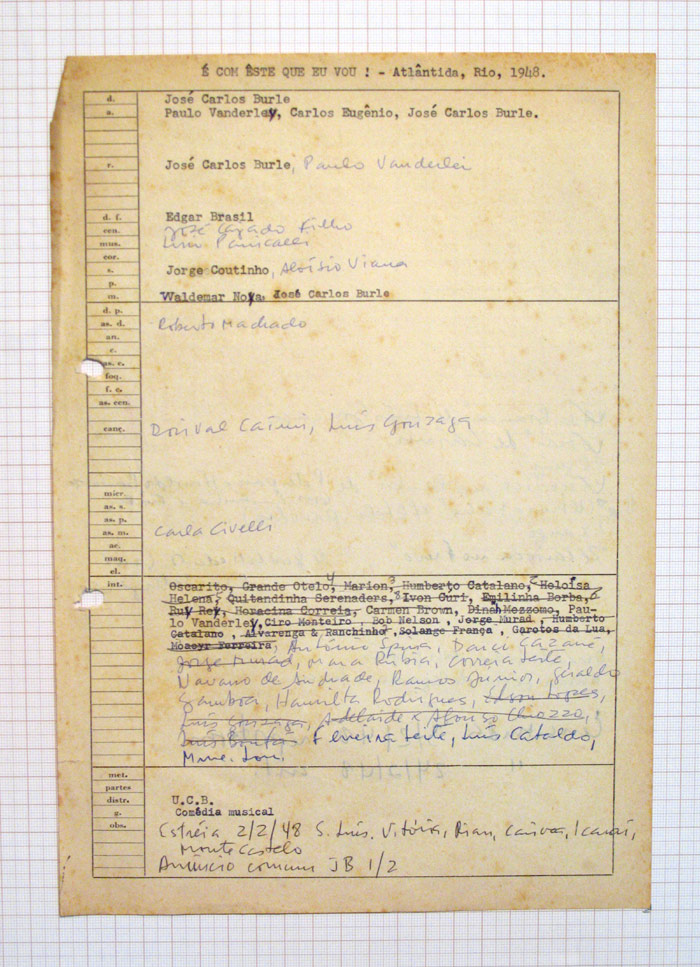 É COM ÊSTE QUE EU VOU ! - Atlântida, Rio, 1948.
d. José Carlos Burle
a. Paulo Vanderley, Carlos Eugênio, José Carlos Burle.
r. José Carlos Burle, Paulo Vanderlei
d. f. Edgar Brasil
cen. José Cajado Filho
mus. Lírio Panicalli
cor.
s. Jorge Coutinho, Aloísio Viana
p.
m. Waldemar Noya, José Carlos Burle
d. p.
as. d. Roberto Machado
an.
c.
as. c.
foq.
f. c.
as. cen.
canç. Dorival Caimi, Luís Gonzaga
micr.
as. s.
as. p.
as. m. Carla Civelli
ac.
maq.
el.
int. Oscarito, Grande Otelo, Marion, Humberto Catalano, Heloísa
Helena, Quitandinha Serenaders, Ivon Curi, Emilinha Borba,
Ruy Rey, Horacina Correia, Carmen Brown, Dinah Mezzomo, Pau-
lo Vanderley, Ciro Monteiro, Bob Nelson, Jorge Murad, Humberto
Catalano, Alvarenga & Ranchinho, Solange França, Garotos da Lua,
Moacyr Ferreira, Antônio Spina, Darci Cazarré,
Jorge Murad, Mara Rúbia, Correia Leite,
Navarro de Andrade, Ramos Júnior, Geraldo
Gamboa, Hamilta Rodrigues, Edson Lopes,
Luís Gonzaga, Adelaide e Afonso Chiozzo,
Ferreira Leite, Luís Cataldo,
Mme.
met.
partes
distr. U.C.B.
g. Comédia musical
obs. Estréia 2/2/48 S. Luís, Vitória, Rian, Carioca, Icaraí,
Monte Castelo
Anúncio comum JB 1/2